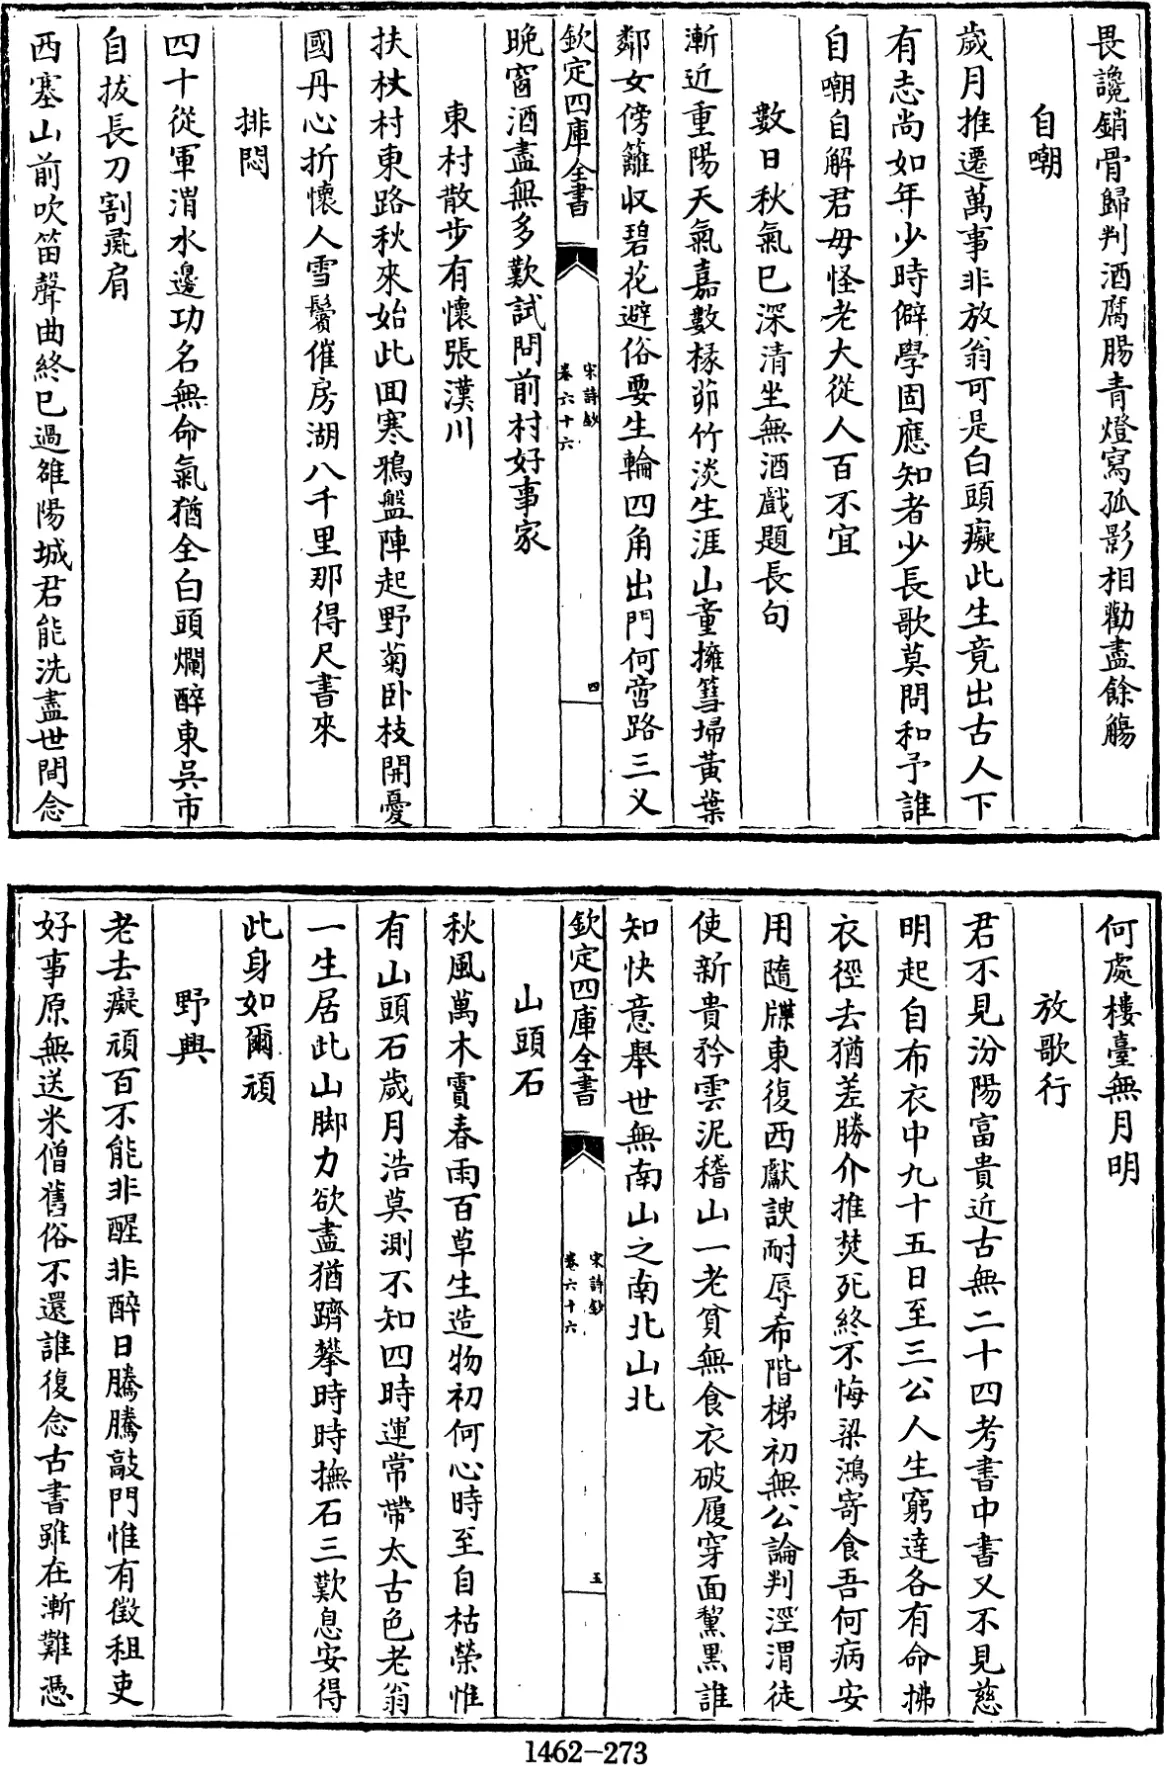 畏讒銷骨歸判酒腐腸青燈寫孤影相勸盡餘觴
自嘲
歲月推遷萬事非放翁可是白頭癡此生竟出古人下
有志尚如年少時僻學固應知者少長歌莫問和予誰
自嘲自解君毋怪老大從人百不宜
數日秋氣已深清坐無酒戲題長句
漸近重陽天氣嘉數椽茆竹淡生涯山童擁篲掃黃葉
鄰女傍籬收碧花避俗要生輪四角出門何啻路三义
欽定四庫全書
宋詩鈔
卷六十六
四
晚窗酒盡無多歎試問前村好事家
東村散步有懷張漢川
扶杖村東路秋來始此回寒鴉盤陣起野菊卧枝開憂
國丹心折懷人雪鬢催房湖八千里那得尺書來
排悶
四十從軍渭水邊功名無命氣猶全白頭爛醉東吳市
自拔長刀割彘肩
西塞山前吹笛聲曲終已過雒陽城君能洗盡世間念
何處樓臺無月明
放歌行
君不見汾陽富貴近古無二十四考書中書又不見慈
明起自布衣中九十五日至三公人生窮達各有命拂
衣徑去猶差勝介推焚死終不悔梁鴻寄食吾何病安
用隨牒東復西獻諛耐辱希階梯初無公論判涇渭徒
使新貴矜雲泥稽山一老貧無食衣破履穿面黧黑誰
知快意舉世無南山之南北山北
欽定四庫全書
宋詩鈔
卷六十六
五
山頭石
秋風萬木霣春雨百草生造物初何心時至自枯榮惟
有山頭石歲月浩莫測不知四時運常帶太古色老翁
一生居此山脚力欲盡猶躋攀時時撫石三歎息安得
此身如爾頑
野興
老去癡頑百不能非醒非醉日騰騰敲門惟有徵租吏
好事原無送米僧舊俗不還誰復念古書雖在漸難憑
1462-273